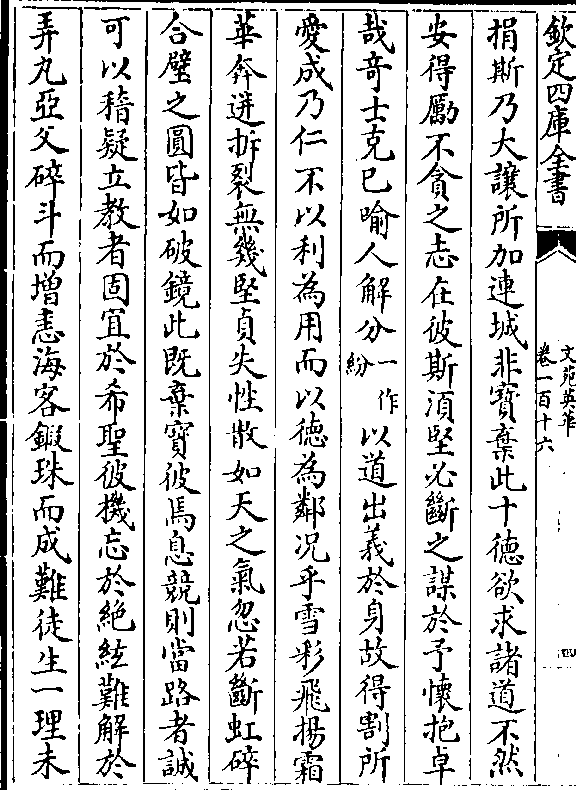 欽定四庫全書
文苑英華
卷一百十六
四
捐斯乃大讓所加連城非寳棄此十德欲求諸道不然
安得勵不貪之志在彼斯須堅必斷之謀於予懷抱卓
哉奇士克已喻人解分一作紛以道出義於身故得割所
愛成乃仁不以利為用而以徳為鄰况乎雪彩飛揚霜
華奔迸拆裂無幾堅貞失性散如天之氣忽若斷虹碎
合壁之圓皆如破鏡此既棄寳彼焉息競則當路者誠
可以稽疑立教者固宜於希聖彼機忘於絶絃難解於
弄丸亞父碎斗而增恚海客鍜珠而成難徒生一理未